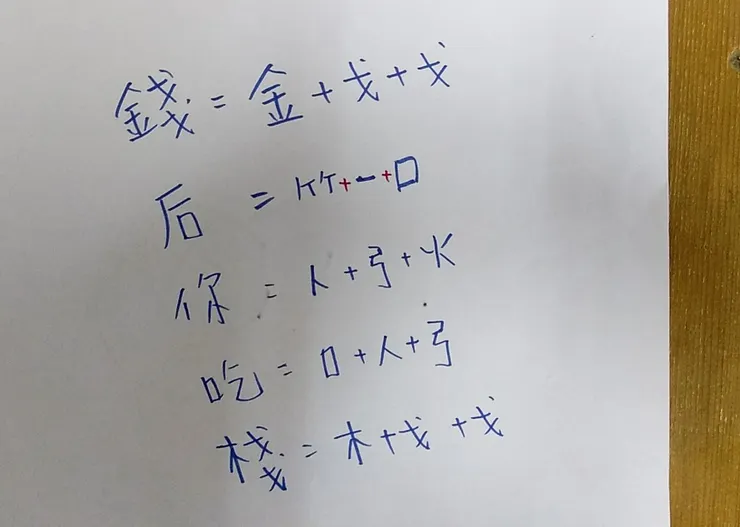 錢 = 金 + 戈 + 戈
后 = 竹 + 一 + 口
你 = 人 + 弓 + 火
吃 = 口 + 人 + 弓
棧 = 木 + 戈 + 戈